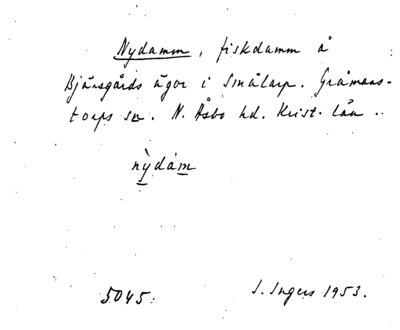 Nydamm, fiskdamm å
Bjärsgårds ägor i Smålarp. Gråmans-
torps sn. N. Åsbo hd. Krist. län.
nỳdàm
5045. I. Ingers 1953.